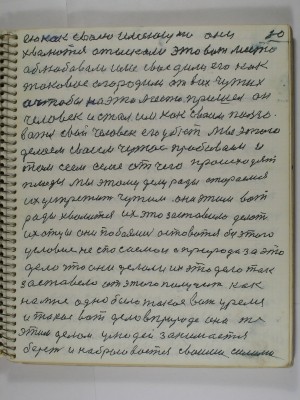 ею как своим именуют они 20
хвалются отыскали это вот место
облюбовали и не сводили его как
таковое огородили от всех чужих
а чтобы на это место пришел он
человек и стал им как своим
вами свой человек его убьет. Мы этого
делаем своим чужое пробовали и
там сеем семя от чего происходят
плоды мы этому делу рады стараемся
их укрепить чужим она этим вот
рады хвалится их это заставило делать
их отцы они побоями остаются без этого
условие не спосаемое природа за это
дело это они делали их это дело так
заставило от этого получить как
на мне одно было такое вот время
и такое вот дело в природе она
этим делом у людей занимается
берет и набрасывается своими силами